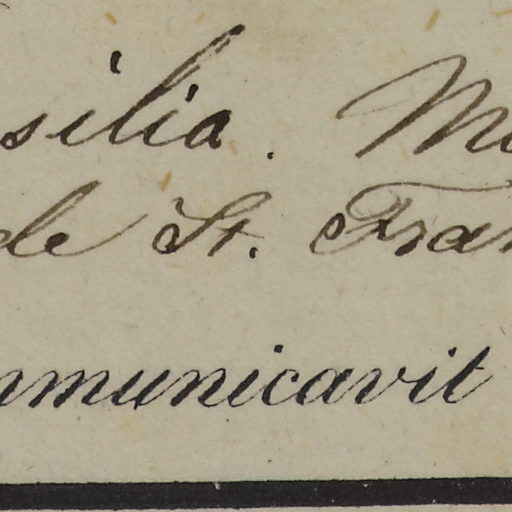 silia. M
de St. Fran
mmunicavit